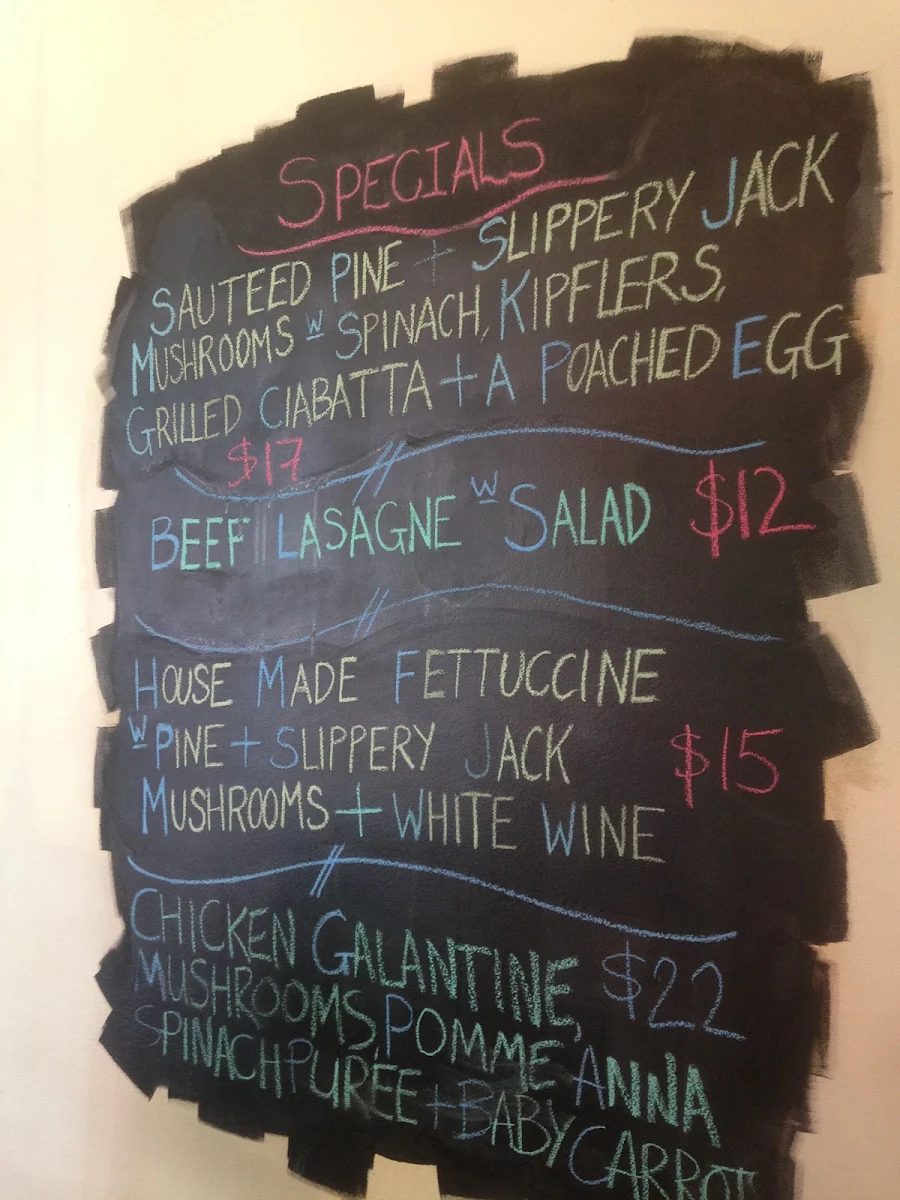 SPECIALS
SAUTEED PINE + SLIPPERY JACK
MUSHROOMS W SPINACH, KIPFLERS,
GRILLED CIABATTA + A POACHED EGG
$17
BEEF LASAGNE W SALAD $12
HOUSE MADE FETTUCCINE
W PINE + SLIPPERY JACK
$15
MUSHROOMS + WHITE WINE
CHICKEN GALANTINE, $22
MUSHROOMS, POMME ANNA
SPINACH PURÉE + BABY CARROTS